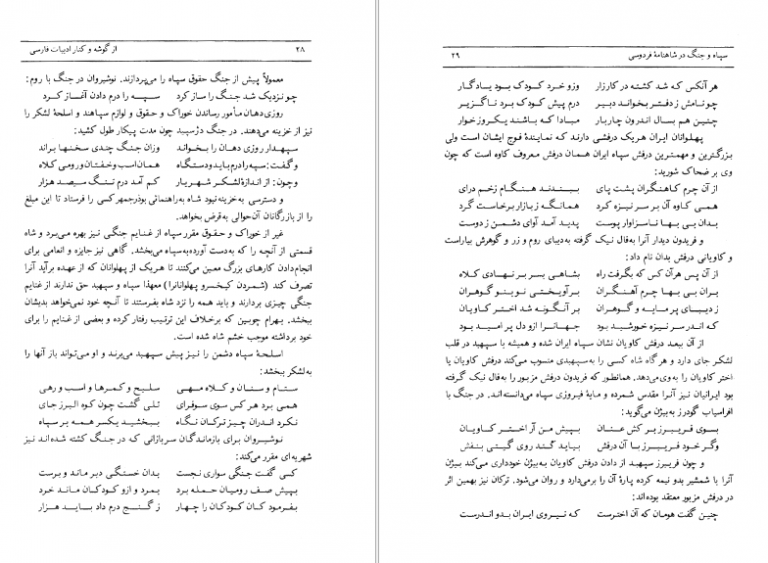 ۲۸ از گوشه و کنار ادبیات فارسی
معمولاً پیش از جنگ حقوق سپاه را می‌پردازند. نوشیروان در جنگ با روم:
چو نزدیک شد جنگ را ساز کرد سپه را درم دادن آغاز کرد
روزی‌دهان مأمور رساندن خوراک و حقوق و لوازم سپاهند و اجلهٔ لشکر را
نیز از خزینه می‌دهند. در جنگ دژسپید چون مدت پیکار طول کشید:
سپهدار روزی دهان را بخواند وزان جنگ چندی سخنها براند
و گفت: سپه را درم باید و دستگاه همان اسب و خفتان و رومی کلاه
و چون: از اندازهٔ لشکر شهریار کم آمد درم تنگ سیصد هزار
و دسترسی به خزینه نبود شاه به راهنمائی بوذرجمهر کسی را فرستاد تا این مبلغ
را از بازرگانان آن حوالی به قرض بخواهد.
غیر از خوراک و حقوق مقرر سپاه از غنایم جنگی نیز بهره می‌برد و شاه
قسمتی از آنچه را که به‌دست آورده به سپاه می‌بخشد. گاهی نیز جایزه و انعامی برای
انجام‌دادن کارهای بزرگ معین می‌کنند تا هریک از پهلوانان که از عهده برآید آنرا
تصرف کند (شمردن کیخسرو پهلوانانرا) معهذا سپاه و سپهبد حق ندارند از غنایم
جنگی چیزی بردارند و باید همه را نزد شاه بفرستند تا آنچه خود نمی‌خواهد بدیشان
ببخشد. بهرام چوبین که برخلاف این ترتیب رفتار کرده و بعضی از غنایم را برای
خود برداشته موجب خشم شاه شده است.
اسلحهٔ سپاه دشمن را نیز پیش سپهبد می‌برند و او می‌تواند باز آنها را
به لشکر ببخشد:
ستام و سنان و کلاه مهی سلیح و کمرها و اسب و رهی
همی برد هر کس سوی سوفرای تلی گشت چون کوه البرز جای
نکرد اندران چیز ترکان نگاه ببخشید یکسر همه بر سپاه
نوشیروان برای بازماندگان سربازانی که در جنگ کشته شده‌اند نیز
شهریه‌ای مقرر می‌کند:
کسی گفت جنگی سواری نجست بدان خستگی دیر ماند و برست
بپیش صف رومیان حمله برد بمرد و ازو کودکان ماند خرد
بفرمود کان کودکان را چهار ز گنج درم داد باید هزار
سپاه و جنگ در شاهنامهٔ فردوسی ۲۹
هر آنکس که شد کشته در کارزار وزو خرد کودک بود یادگار
چو نامش ز دفتر بخواند دبیر درم پیش کودک برد ناگزیر
چنین هم بسال اندرون چار بار مبادا که باشند یک روز خوار
پهلوانان ایران هریک درفشی دارند که نمایندهٔ فوج ایشان است ولی
بزرگترین و مهمترین درفش سپاه ایران همان درفش معروف کاوه است که چون
وی بر ضحاک شورید:
از آن چرم کاهنگران پشت پای ببندند هنگام زخم درای
همی کاوه آن بر سر نیزه کرد همانگه ز بازار برخاست گرد
بدان بی بها ناسزاوار پوست پدید آمد آوای دشمن ز دوست
و فریدون دیدار آنرا به‌فال نیک گرفته به‌دیبای روم و زر و گوهرش بیاراست
و کاویانی درفش بدان نام داد:
از آن پس هر آن کس که بگرفت راه بشاهی بسر بر نهادی کلاه
بران بی بها چرم آهنگران برآویختی نو بنو گوهران
ز دیبای پر مایه و گوهران بر آنگونه شد اختر کاویان
که اندر سر نیزه خورشید بود جهانرا ازو دل پر امید بود
از آن بیعد درفش کاویان نشان سپاه ایران شده و همیشه با سپهبد در قلب
لشکر جای دارد و هرگاه شاه کسی را به‌سپهبدی منسوب می‌کند درفش کاویان یا
اختر کاویان را به‌وی می‌دهد. همانطور که فریدون درفش مزبور را به‌فال نیک گرفته
بود ایرانیان نیز آنرا مقدس شمرده و مایهٔ فیروزی سپاه می‌دانسته‌اند. در جنگ با
افراسیاب گودرز به‌بیژن می‌گوید:
بسوی فریبرز برکش عنان بپیش من آر اختر کاویان
وگر خود فریبرز با آن درفش بیاید کند روی گیتی بنفش
و چون فریبرز سپهبد از دادن درفش کاویان به‌بیژن خودداری می‌کند بیژن
آنرا با شمشیر بدو نیمه کرده پارهٔ آن را برمی‌دارد و روان می‌شود. ترکان نیز بهمین اثر
در درفش مزبور معتقد بوده‌اند:
چنین گفت هومان که آن اخترست که نیروی ایران بدو اندرست